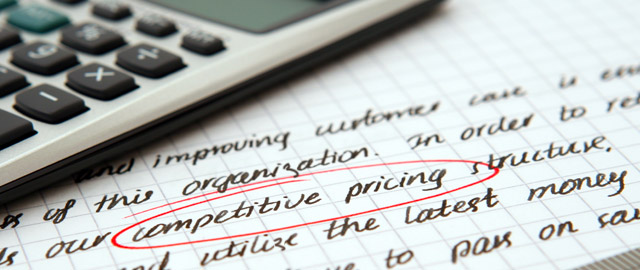 9
×
÷
and improving customer care is
of this organization. In order to
our competitive pricing structure.
and utilize the latest money
to pass on